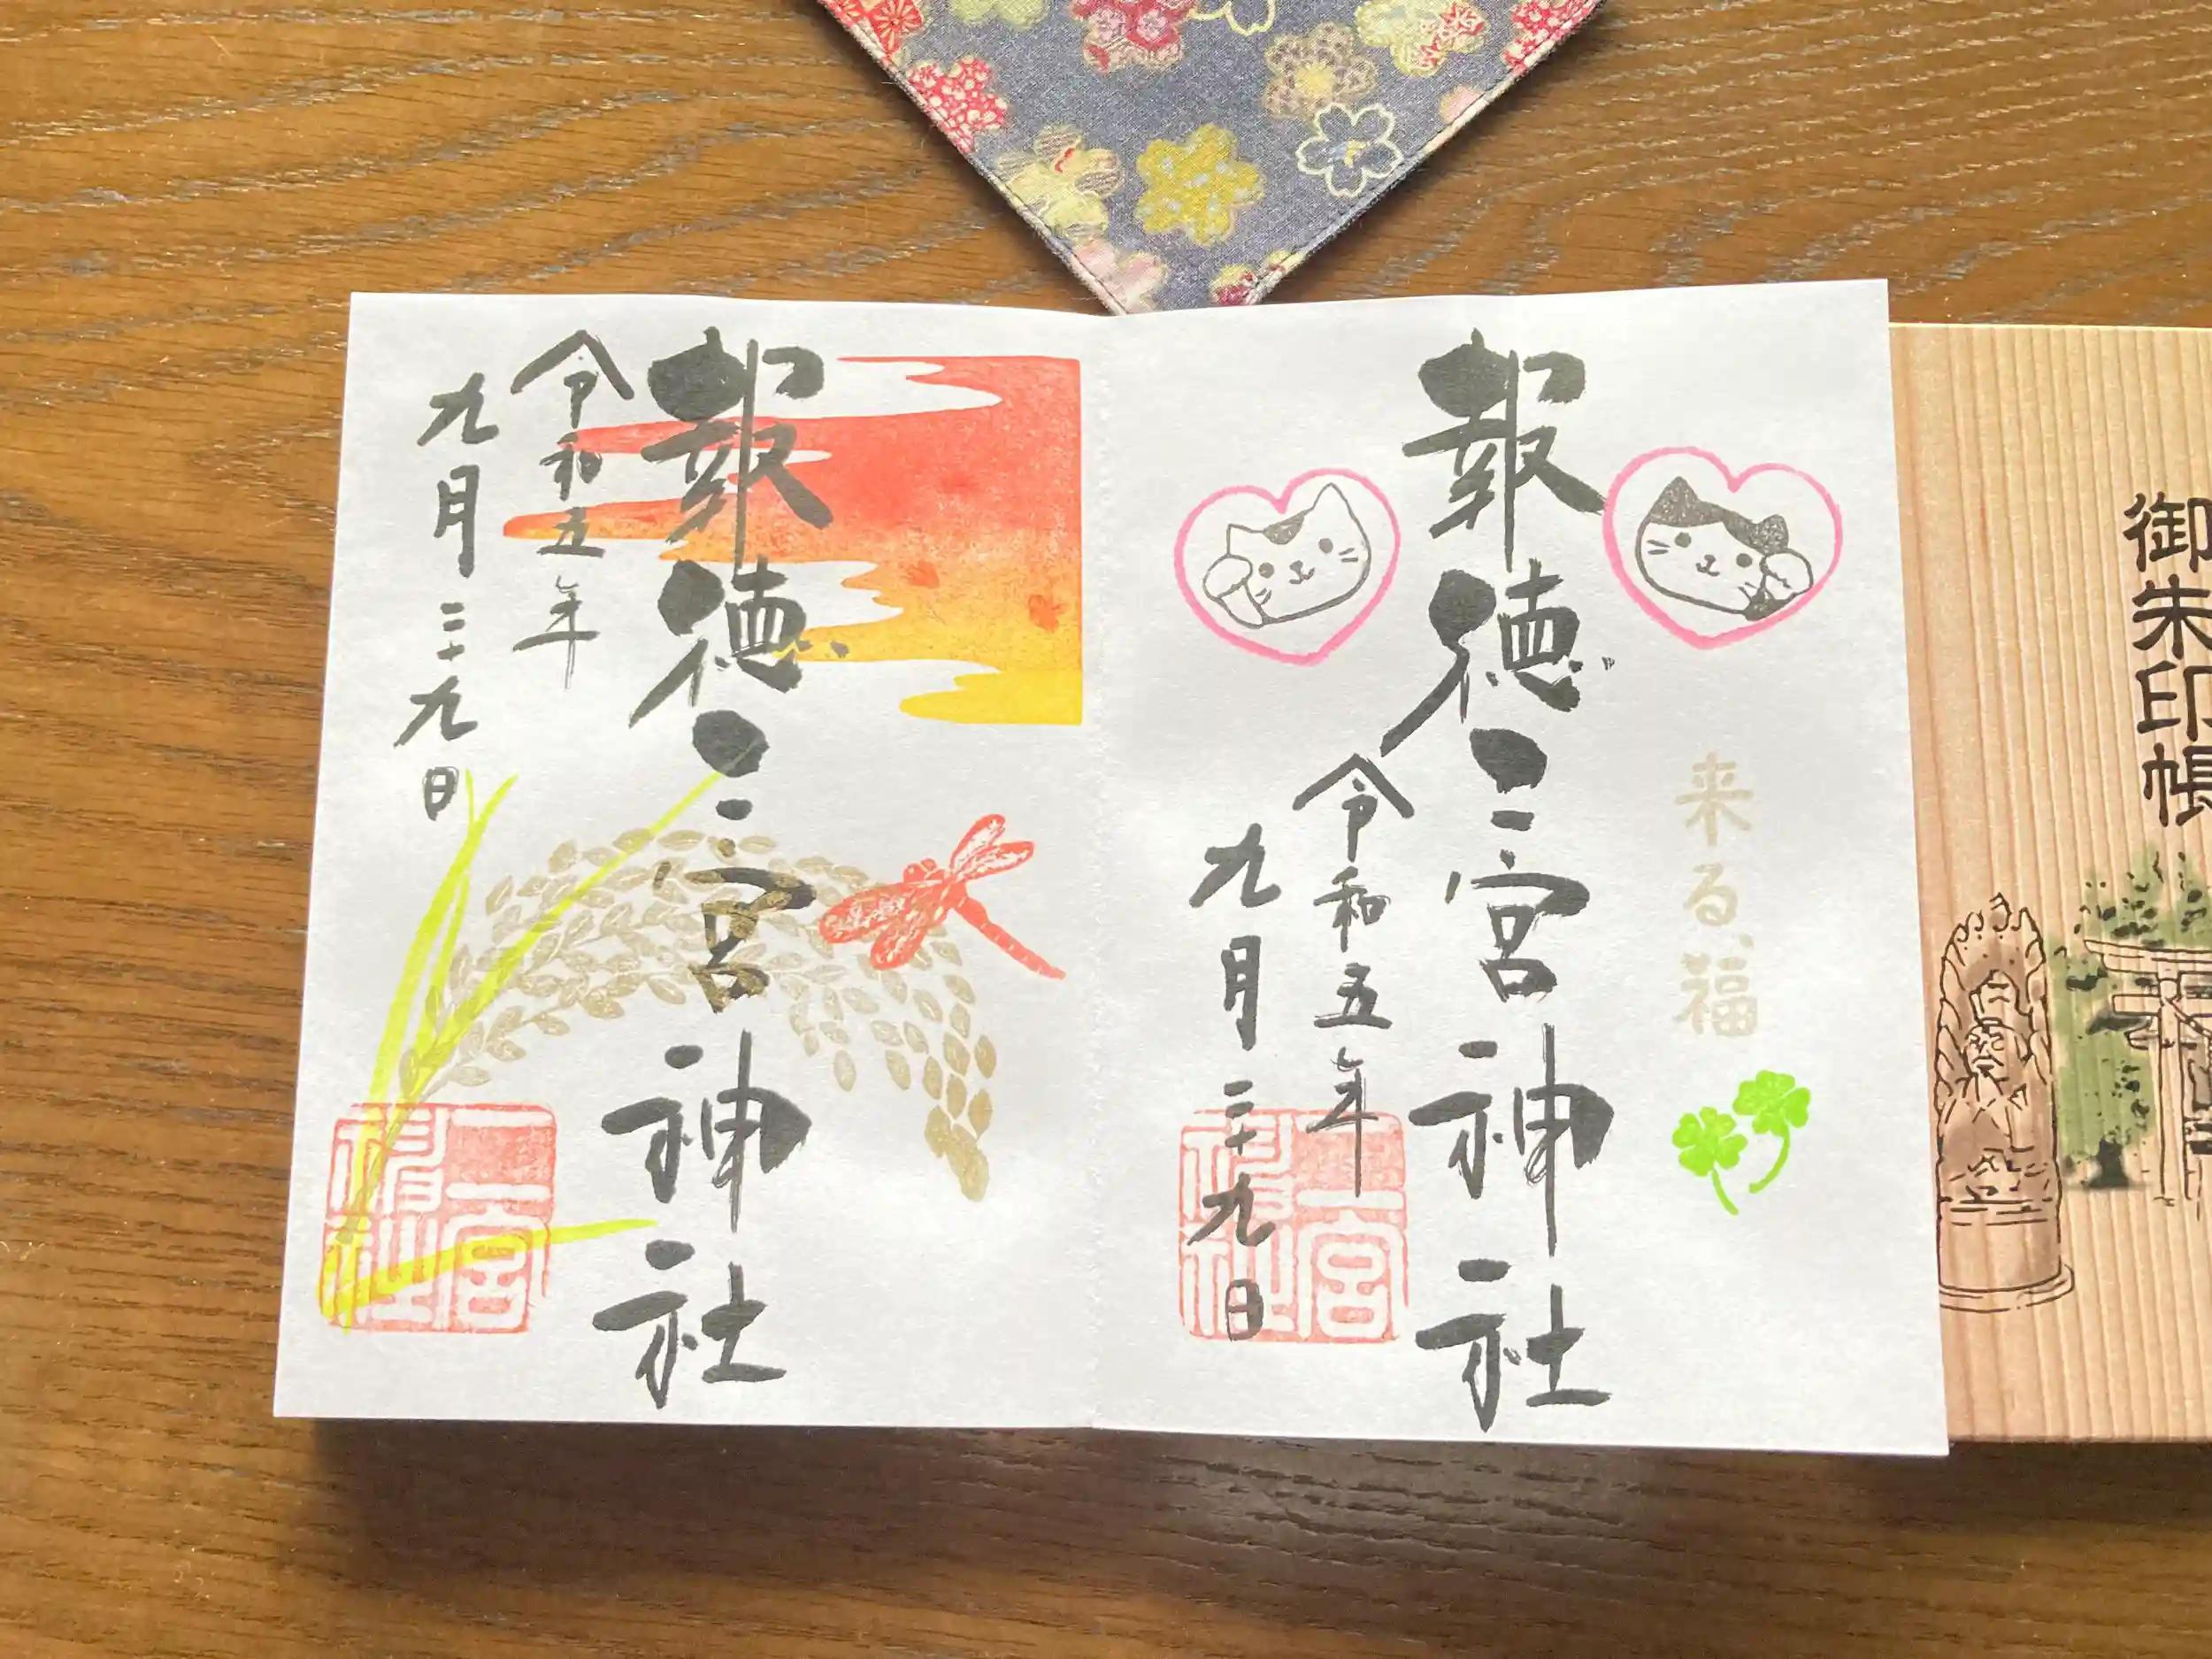 御朱印帳
来る福
報徳二宮神社
令和五年
九月二十九日
二宮
神社
報徳二宮神社
令和五年
九月二十九日
二宮
神社